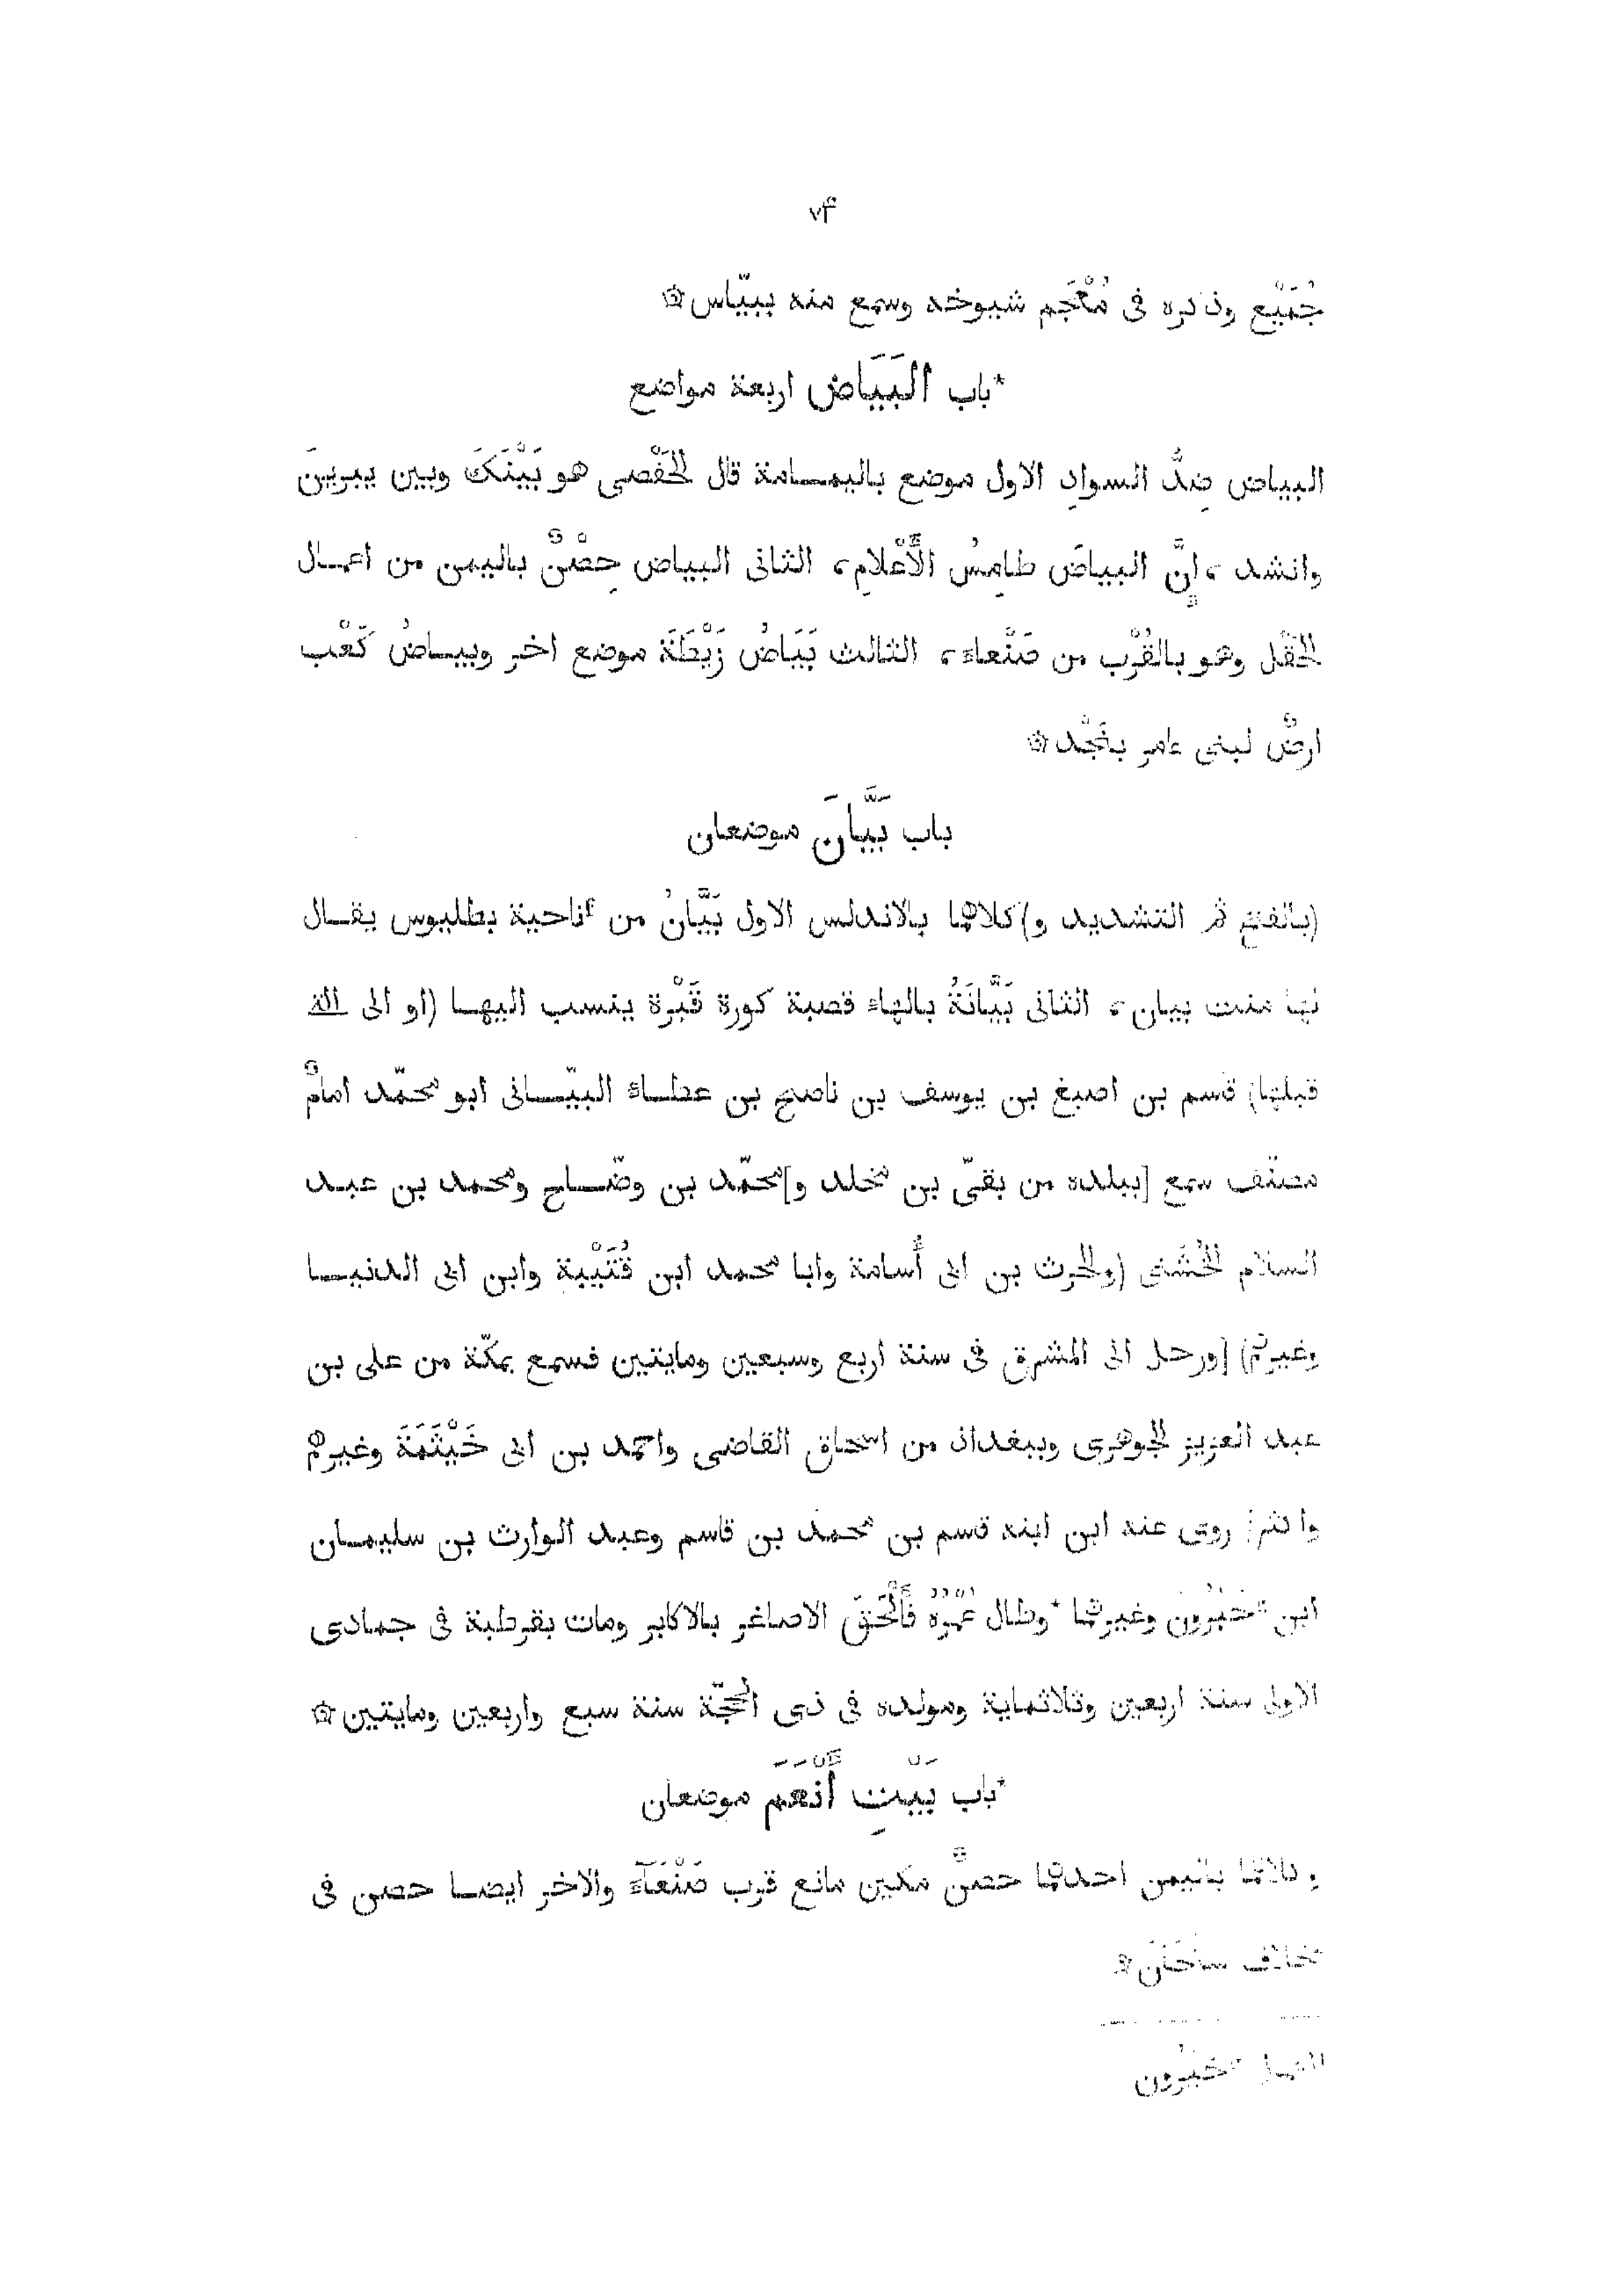 ٧۴
جُمَيْع وذكره فى مُعْجَم شيوخه وسمع منه ببيّاس۞
*باب البَيَاض اربعة مواضع
البياض ضِدُّ السوادِ الاول موضع باليمـامة قال الحَفْصى هو بَيْنَكَ وبين يبرينَ
وانشد ، إنَّ البياضَ طامِسُ الأَعْلامِ، الثانى البياض حِصْنٌ باليمن من اعمـال
الحَقْل وهو بالقُرْب من صَنْعاء، الثالث بَيَاضُ رَيْطَةَ موضع اخر وبيـاضُ كَعْب
ارضٌ لبنى عامر بنَجْد۞
باب بَيَّانَ موضعان
(بالفتح ثم التشديد و)كلاهما بالاندلس الاول بَيَّانُ من ناحية بطليوس يقـال
لها منت بيان، الثانى بَيَّانَةُ بالهاء قصبة كورة قَبْرة ينسب اليهـا (او الى الة
قبلها) قسم بن اصبغ بن يوسف بن ناصح بن عطـاء البيّـانى ابو محمّد امامٌ
مصنّف سمع [ببلده من بقىّ بن مخلد و]محمّد بن وضّـاح ومحمد بن عبـد
السلام الخُشَنى (والحرث بن ابى أُسامة وابا محمد ابن قُتَيْبة وابن ابى الدنيـا
وغيرهم) [ورحل الى المشرق فى سنة اربع وسبعين ومايتين فسمع بمكّة من على بن
عبد العزيز الجوهرى وببغداد من اسحاق القاضى واحمد بن ابى خَيْثَمَةَ وغيرهم
واكثر] روى عنه ابن ابنه قسم بن محمد بن قاسم وعبد الوارث بن سليمـان
ابن خَبْرُون وغيرهما *وطال عُمْرُهُ فأَلْحَقَ الاصاغر بالاكابر ومات بقرطبة فى جمادى
الاولى سنة اربعين وثلاثماية ومولده فى ذى الحجّة سنة سبع واربعين ومايتين۞
*باب بَيْتِ أَنْعَمَ موضعان
وكلاهما باليمن احدهما حصنٌ مكين مانع قرب صَنْعَآءَ والاخر ايضـا حصن فى
مخلاف سنحَان۞
خَبْرُون